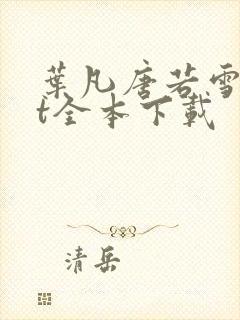 葉凡唐若雪
t全本下載
清岳